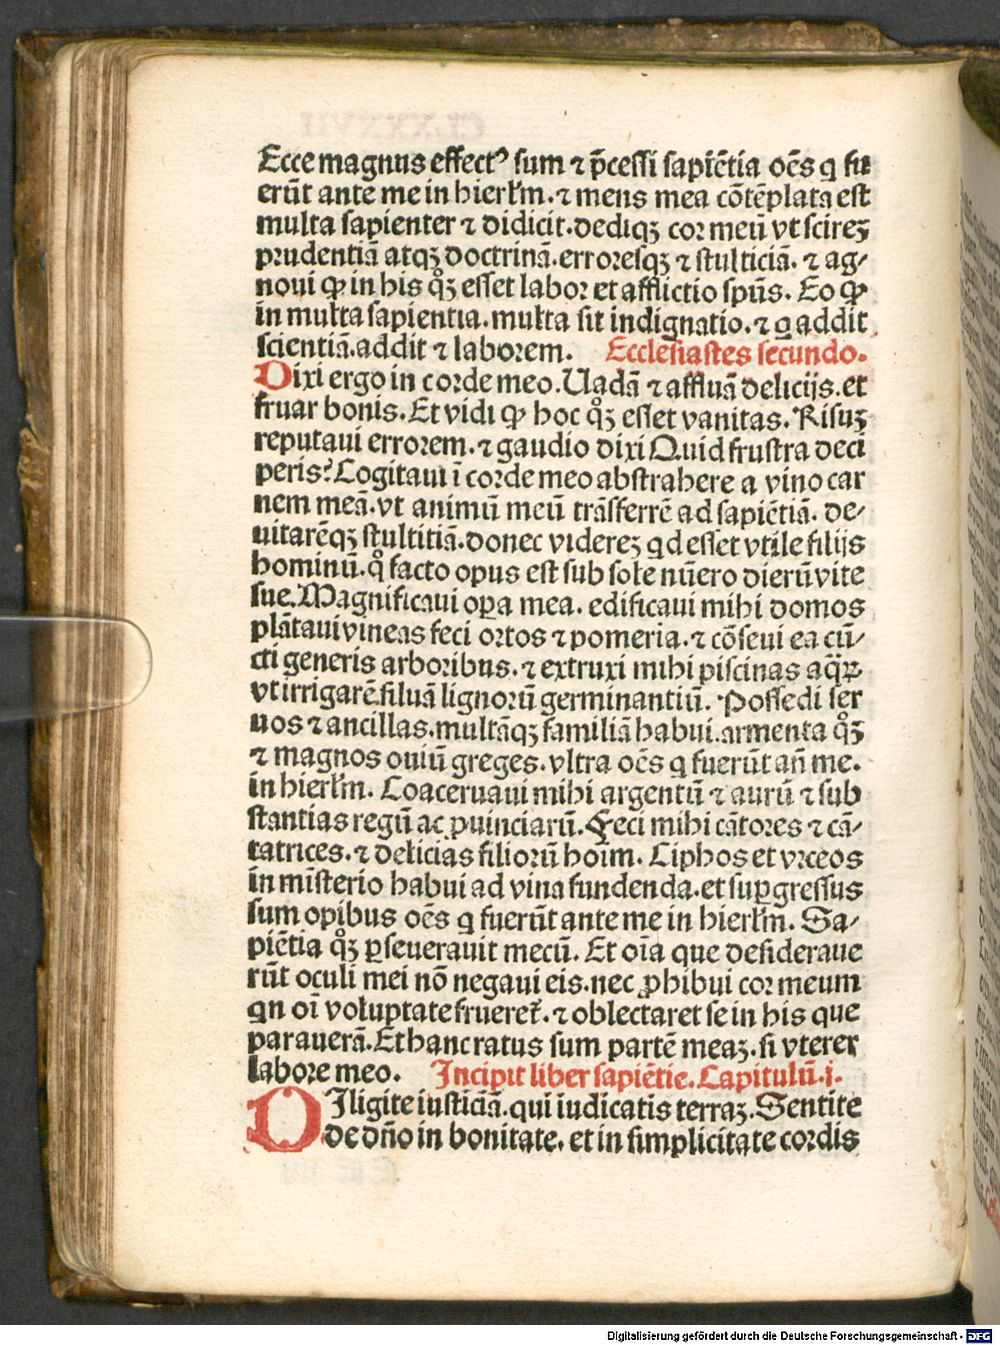 Ecce magnus effectꝰ sum ⁊ p̄cessi sapiētia oēs q fu
erūt ante me in hierl̄m. ⁊ mens mea cōtēplata est
multa sapienter ⁊ didicit. dediqꝫ cor meū vt scireꝫ
prudentiā atqꝫ doctrinā. erroresqꝫ ⁊ stulticiā. ⁊ ag⸗
noui ꝙ in his qͦꝫ esset labor et afflictio spūs. Eo ꝙ
in multa sapientia. multa sit indignatio. ⁊ q addit
scientiā. addit ⁊ laborem. Ecclesiastes secundo.
Dixi ergo in corde meo. Uadā ⁊ affluā delicijs. et
fruar bonis. Et vidi ꝙ hoc qͦꝫ esset vanitas. Risuꝫ
reputaui errorem. ⁊ gaudio dixi Quid frustra deci
peris? Cogitaui ī corde meo abstrahere a vino car
nem meā. vt animū meū trāsferrē ad sapiētiā. de⸗
uitarēqꝫ stultitiā. donec videreꝫ qd esset vtile filijs
hominū. qͦ facto opus est sub sole nūero dierū vite
sue. Magnificaui oꝑa mea. edificaui mihi domos
plātaui vineas feci ortos ⁊ pomeria. ⁊ cōseui ea cū⸗
cti generis arboribus. ⁊ extruxi mihi piscinas aq̄ꝝ
vt irrigarē siluā lignorū germinantiū. Possedi ser
uos ⁊ ancillas. multāqꝫ familiā habui. armenta qͦꝫ
⁊ magnos ouiū greges. vltra oēs q fuerūt añ me.
in hierl̄m. Coaceruaui mihi argentū ⁊ aurū ⁊ sub
stantias regū ac ꝓuinciarū. Feci mihi cātores ⁊ cā⸗
tatrices. ⁊ delicias filiorū hoīm. Ciphos et vrceos
in mīsterio habui ad vina fundenda. et suꝑgressus
sum opibus oēs q fuerūt ante me in hierl̄m. Sa⸗
piētia qͦꝫ ꝑseuerauit mecū. Et oīa que desideraue
rūt oculi mei nō negaui eis. nec ꝓhibui cor meum
qn oī voluptate frueret̄. ⁊ oblectaret se in his que
parauerā. Et hanc ratus sum partē meaꝫ. si vterer
labore meo. Incipit liber sapiētie. Capitulū. i.
DIligite iusticiā. qui iudicatis terraꝫ. Sentite
de dño in bonitate. et in simplicitate cordis
Digitalisierung gefördert durch die Deutsche Forschungsgemeinschaft - DFG